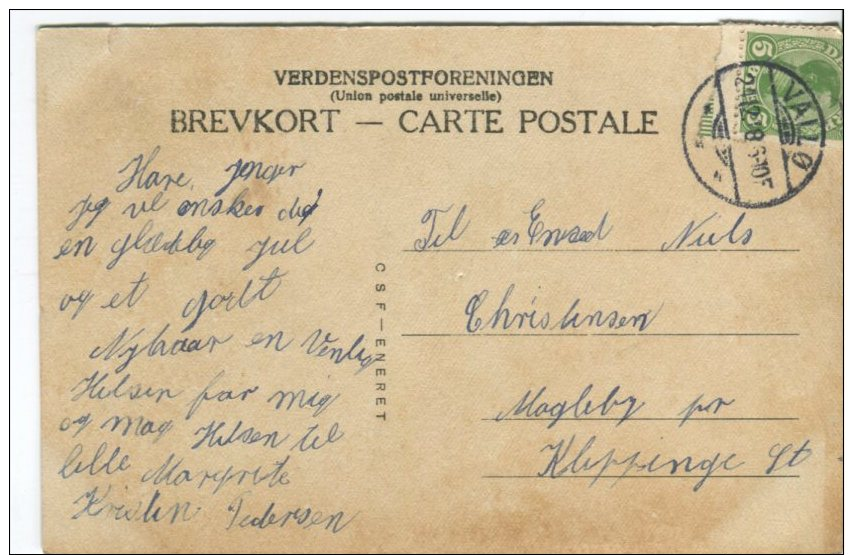 VERDENSPOSTFORENINGEN
(Union postale universelle)
BREVKORT — CARTE POSTALE
5
VALLØ
Jeg vel ønsker dig
en glædelig jul
og et godt
Nytaaar en Venlig
Hilsen far mig
og mag Hilsen til
lille Margrete
Kristin Pedersen
CSF—ENERET
Til Niels
Christinsen
Magleby pr
Klippinge St